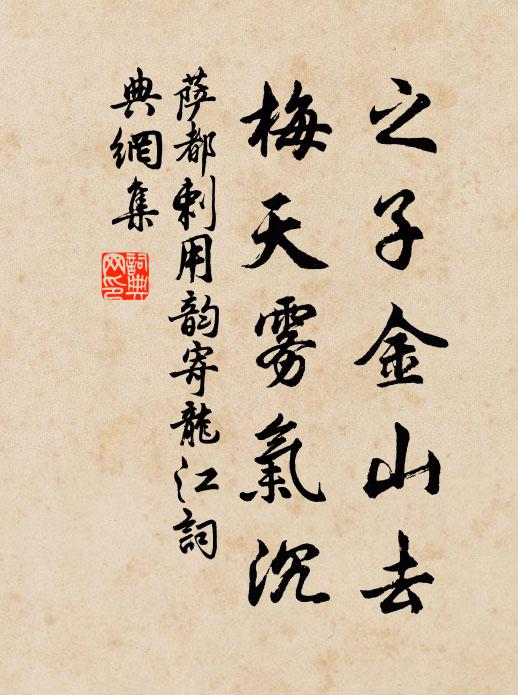 之子金山去
梅天雾氣沉
萨都剌用韵寄龍江詞
典網集
詞典网印